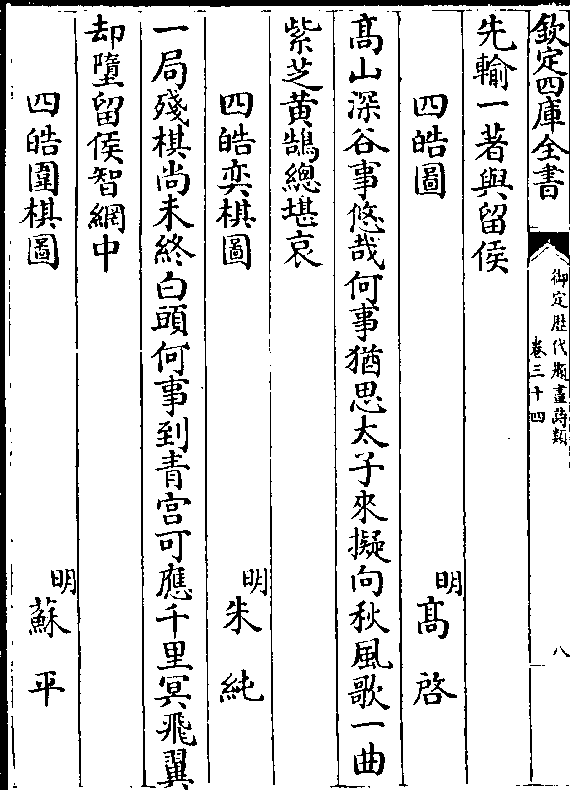 欽定四庫全書
御定歴代題畫詩類
卷三十四
八
先輸一著與留侯
四皓圖
明
髙啓
髙山深谷事悠哉何事猶思太子來擬向秋風歌一曲
紫芝黃鵠總堪哀
四皓奕棋圖
明
朱純
一局殘棋尚未終白頭何事到青宫可應千里冥飛翼
却墮留侯智網中
四皓圍棋圖
明
蘇平